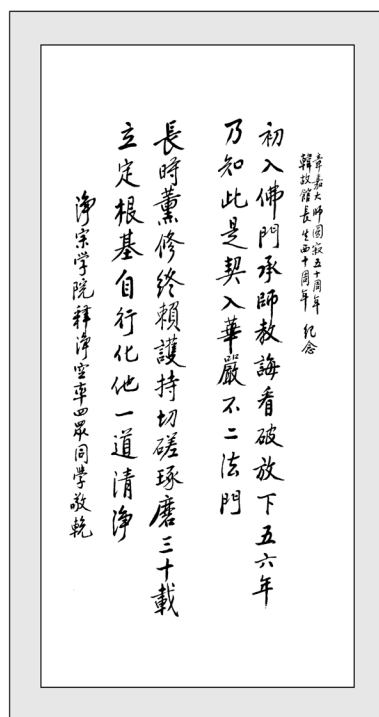 章嘉大師圓寂五十周年
韓故館長生西十周年 紀念
初入佛門承師教誨看破放下五六年
乃知此是契入華嚴不二法門
長時薰修終賴護持切磋琢磨三十載
立定根基自行化他一道清淨
淨宗學院釋淨空率四眾同學敬輓